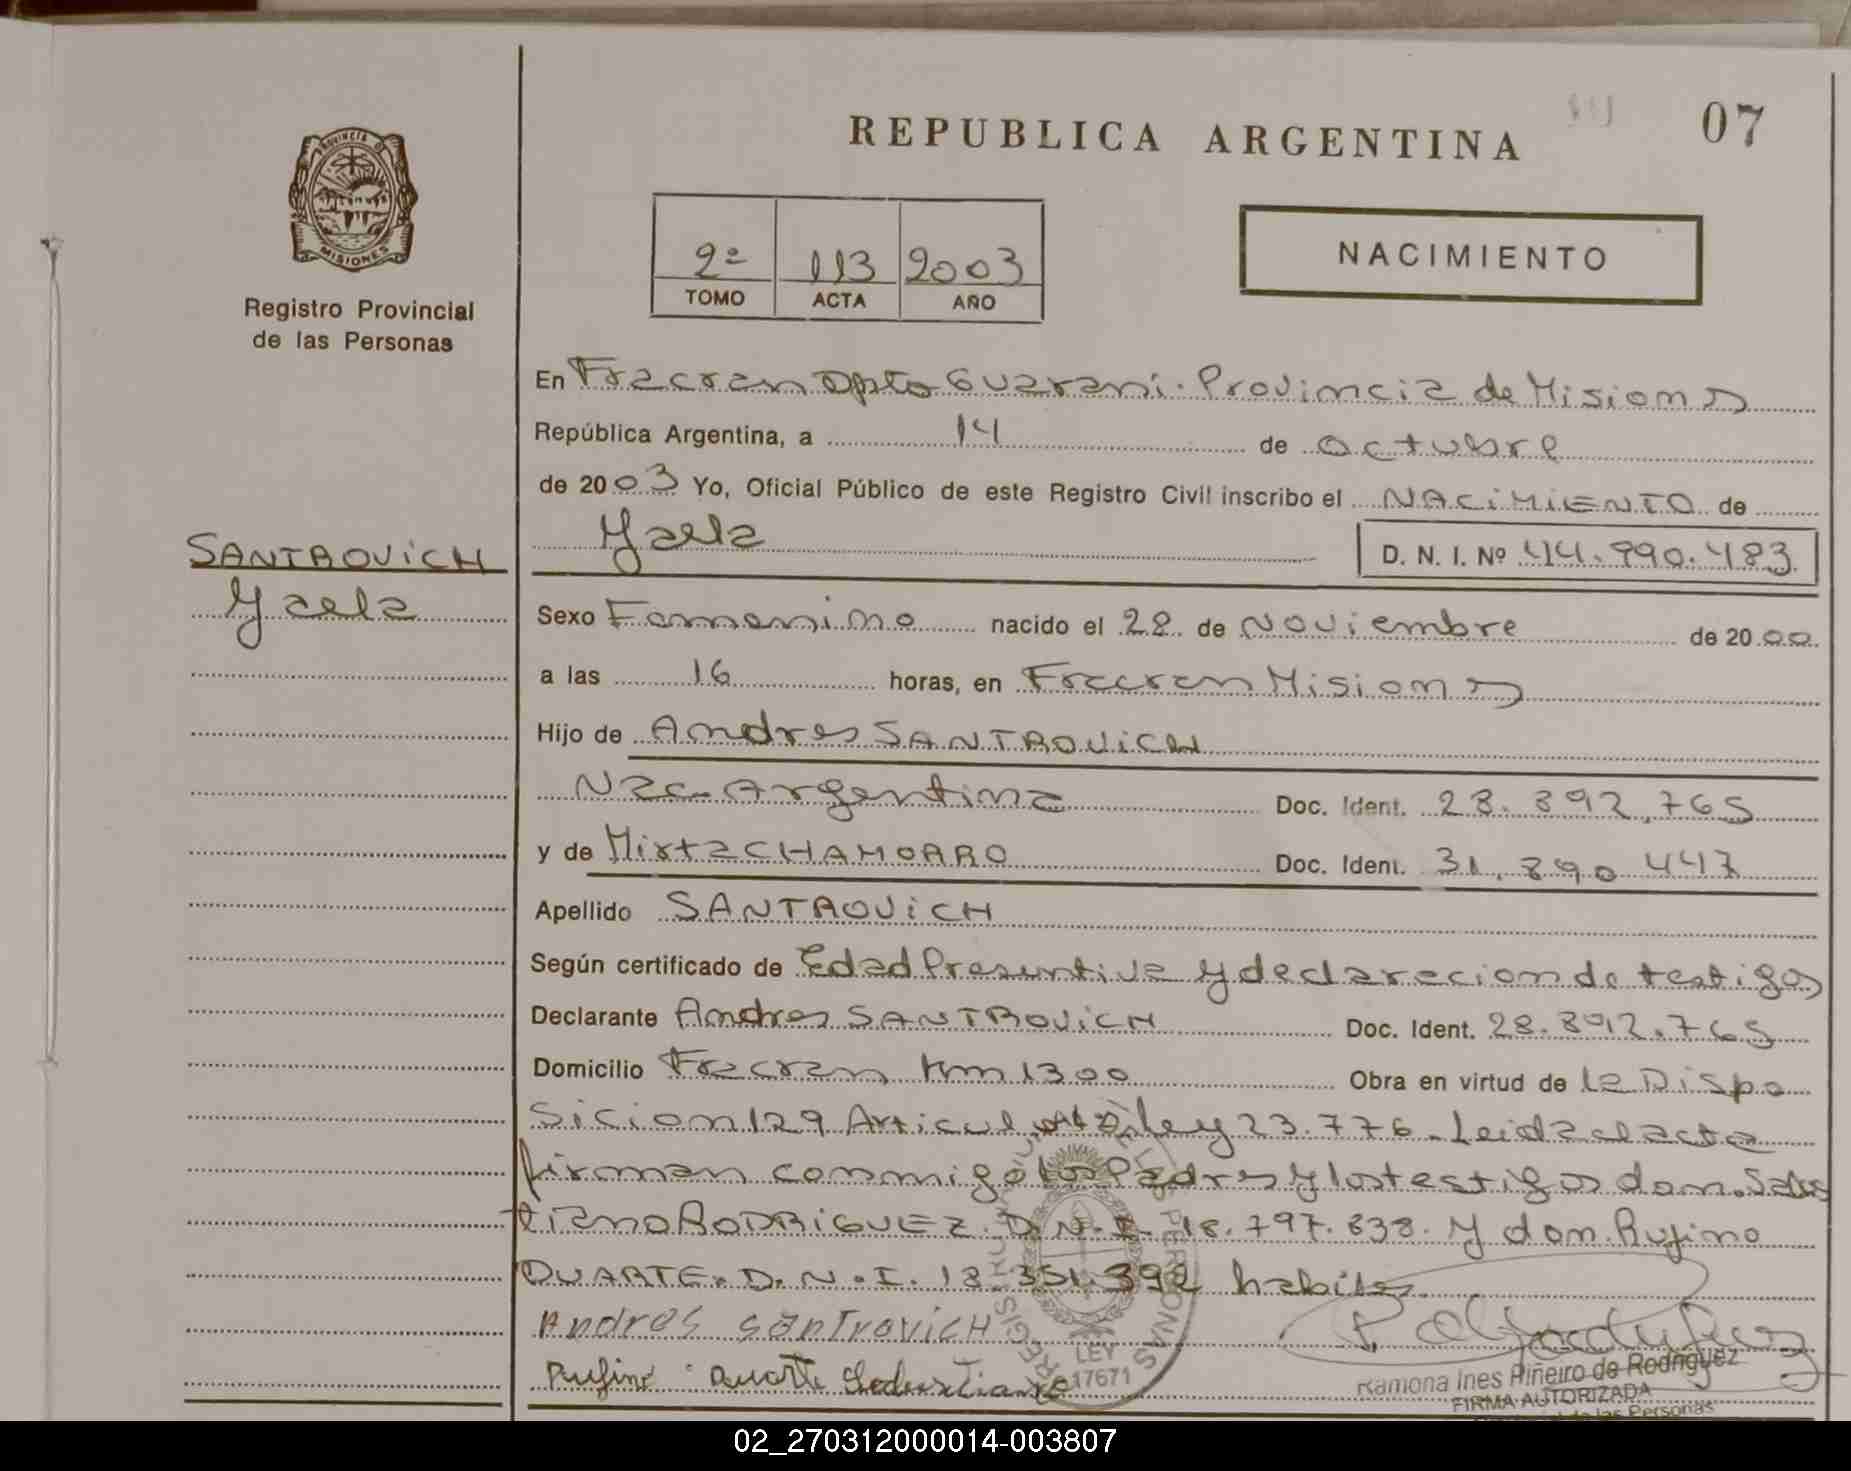 REPUBLICA ARGENTINA
07
PROVINCIA D
MISIONES
Registro Provincial
de las Personas
2º 113 2003
TOMO ACTA AÑO
NACIMIENTO
En Fracran Dpto Guaraní. Provincia de Misiones
República Argentina, a 14 de octubre
de 2003 Yo, Oficial Público de este Registro Civil inscribo el NACIMIENTO de
Yaela
D. N. I. Nº 44.990.483
SANTROVICH
Yaela
Sexo Femenino nacido el 28 de Noviembre de 2000
a las 16 horas, en Fracran Misiones
Hijo de Andres SANTROVICH
Nac. Argentina Doc. Ident. 28.892.765
y de Mirta CHAMORRO Doc. Ident. 31.890.447
Apellido SANTROVICH
Según certificado de Edad Presuntiva y declaracion de testigos
Declarante Andres SANTROVICH Doc. Ident. 28.892.765
Domicilio Fracran Km 1300 Obra en virtud de la Dispo
sicion 129 Articulo Ley 23.776. Leida el acta
firman conmigo los Padres y los testigos don. Sabas
tiano RODRIGUEZ. D.N.I. 18.797.838. y don. Rufino
DUARTE. D.N.I. 18.351.392 habiles.
Andres santrovich
Rufino Duarte
LEY
17671
Ramona Ines Piñeiro de Rodriguez
FIRMA AUTORIZADA
de las Personas
02_270312000014-003807